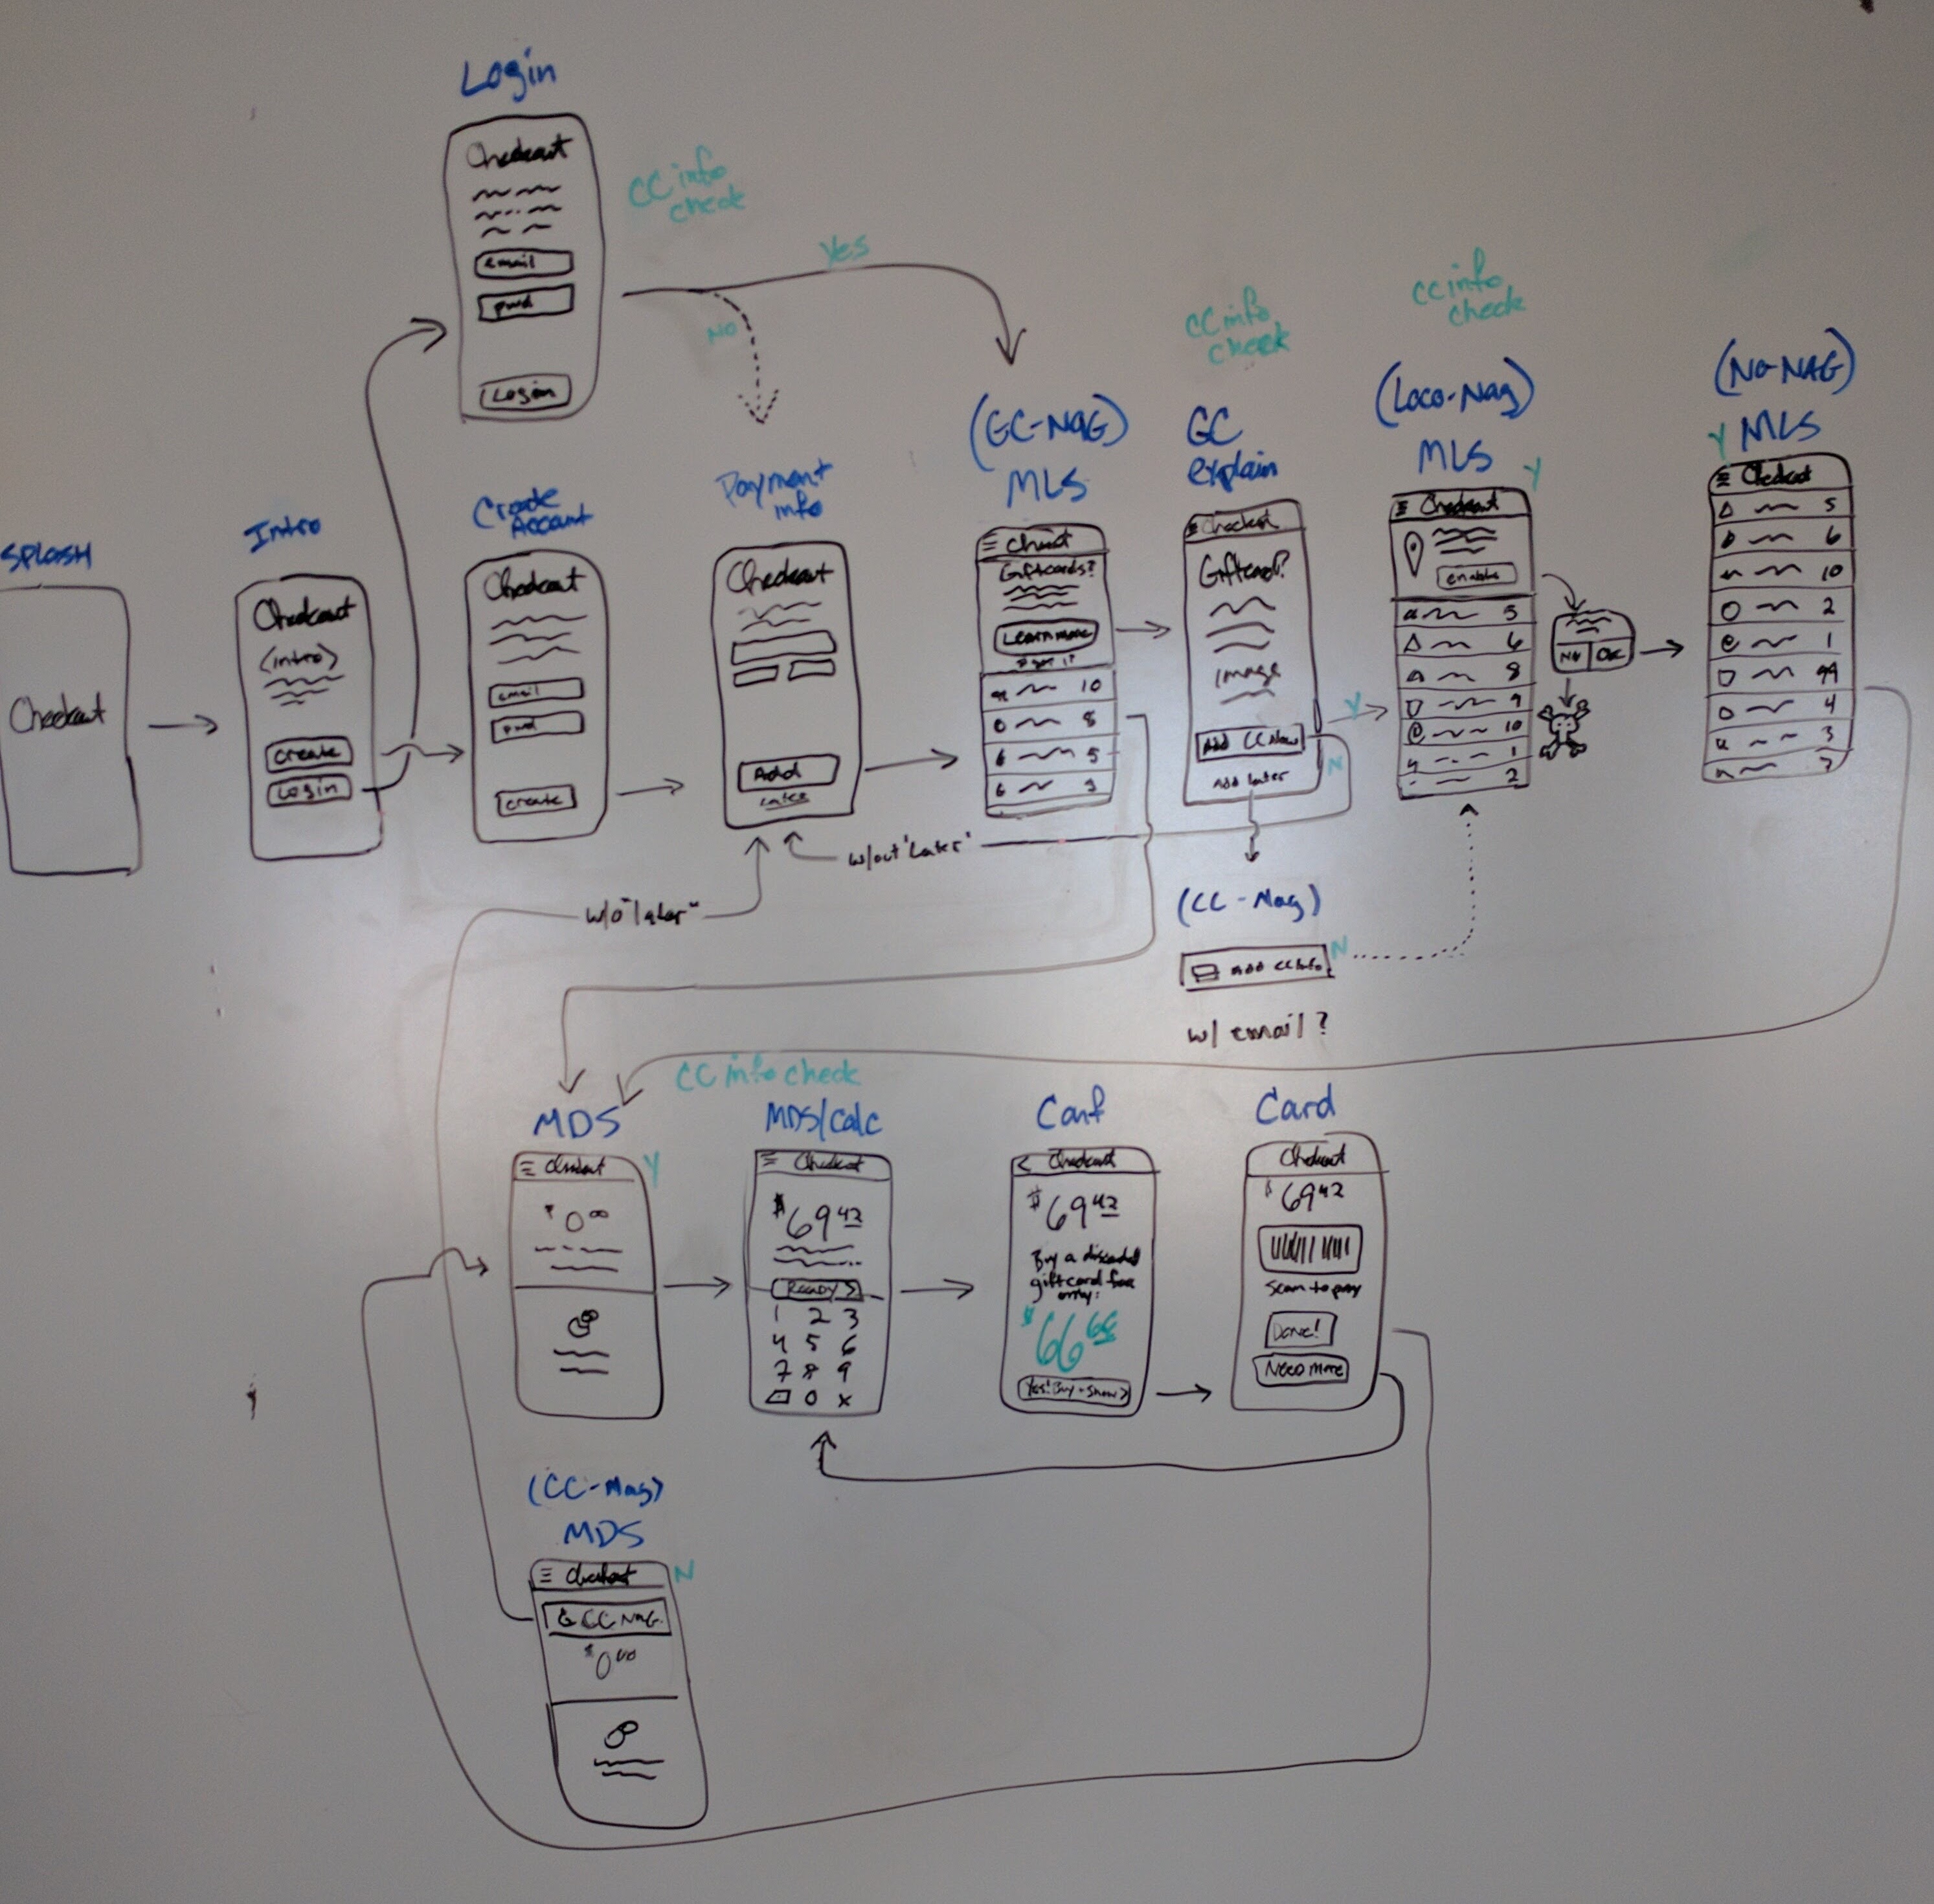 Login
Checkout
email
pwd
Login
CC info
check
Yes
No
SPLASH
Checkout
Intro
Checkout
<intro>
create
Login
Create
Account
Checkout
email
pwd
create
Payment
info
Checkout
Add
Later
(GC-NAG)
MLS
Giftcards?
Learn more
10
8
5
3
CC info
check
GC
explain
Checkout
Giftcard?
image
Add CC Now
Add Later
Y
N
CC info
check
(Loco-Nag)
MLS
Y
Checkout
enable
5
6
8
9
10
1
2
No OK
(NO-NAG)
Y MLS
Checkout
5
6
10
2
1
99
4
3
7
w/out "Later"
w/o "later"
(CC-Nag)
Add CC info
N
w/ email?
CC info check
MDS
Y
Checkout
$0 00
MDS/Calc
Checkout
$69 42
Ready >
1 2 3
4 5 6
7 8 9
0 x
Conf
< Checkout
$69 42
Buy a discounted
giftcard for
only:
$66 66
Yes! Buy + Show >
Card
Checkout
$69 42
Scan to pay
Done!
Need more
(CC-Nag)
MDS
N
Checkout
CC NAG
$0 00